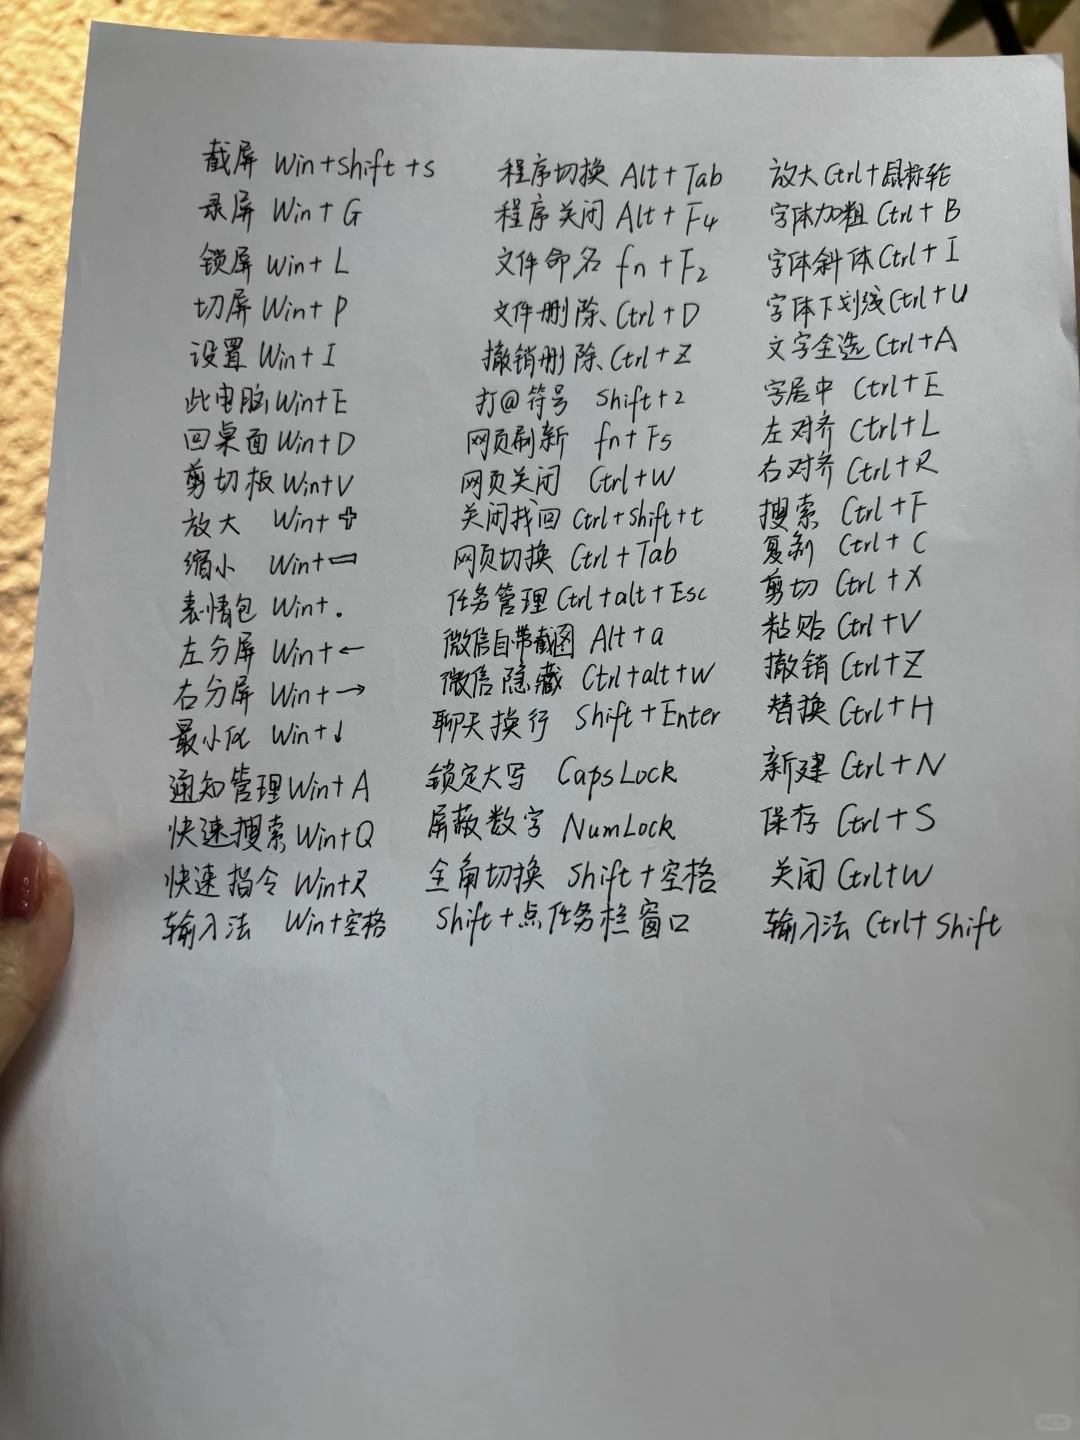 截屏 Win+shift+s
录屏 Win+G
锁屏 Win+L
切屏 Win+P
设置 Win+I
此电脑 Win+E
回桌面 Win+D
剪切板 Win+V
放大 Win+➕
缩小 Win+➖
表情包 Win+.
左分屏 Win+←
右分屏 Win+→
最小化 Win+↓
通知管理 Win+A
快速搜索 Win+Q
快速指令 Win+R
输入法 Win+空格
程序切换 Alt+Tab
程序关闭 Alt+F4
文件命名 fn+F2
文件删除、Ctrl+D
撤销删除、Ctrl+Z
打@符号 Shift+2
网页刷新 fn+F5
网页关闭 Ctrl+W
关闭找回 Ctrl+Shift+t
网页切换 Ctrl+Tab
任务管理 Ctrl+alt+Esc
微信自带截图 Alt+a
微信隐藏 Ctrl+alt+W
聊天换行 Shift+Enter
锁定大写 CapsLock
屏蔽数字 NumLock
全角切换 Shift+空格
Shift+点任务栏窗口
放大 Ctrl+鼠标轮
字体加粗 Ctrl+B
字体斜体 Ctrl+I
字体下划线 Ctrl+U
文字全选 Ctrl+A
字居中 Ctrl+E
左对齐 Ctrl+L
右对齐 Ctrl+R
搜索 Ctrl+F
复制 Ctrl+C
剪切 Ctrl+X
粘贴 Ctrl+V
撤销 Ctrl+Z
替换 Ctrl+H
新建 Ctrl+N
保存 Ctrl+S
关闭 Ctrl+W
输入法 Ctrl+Shift